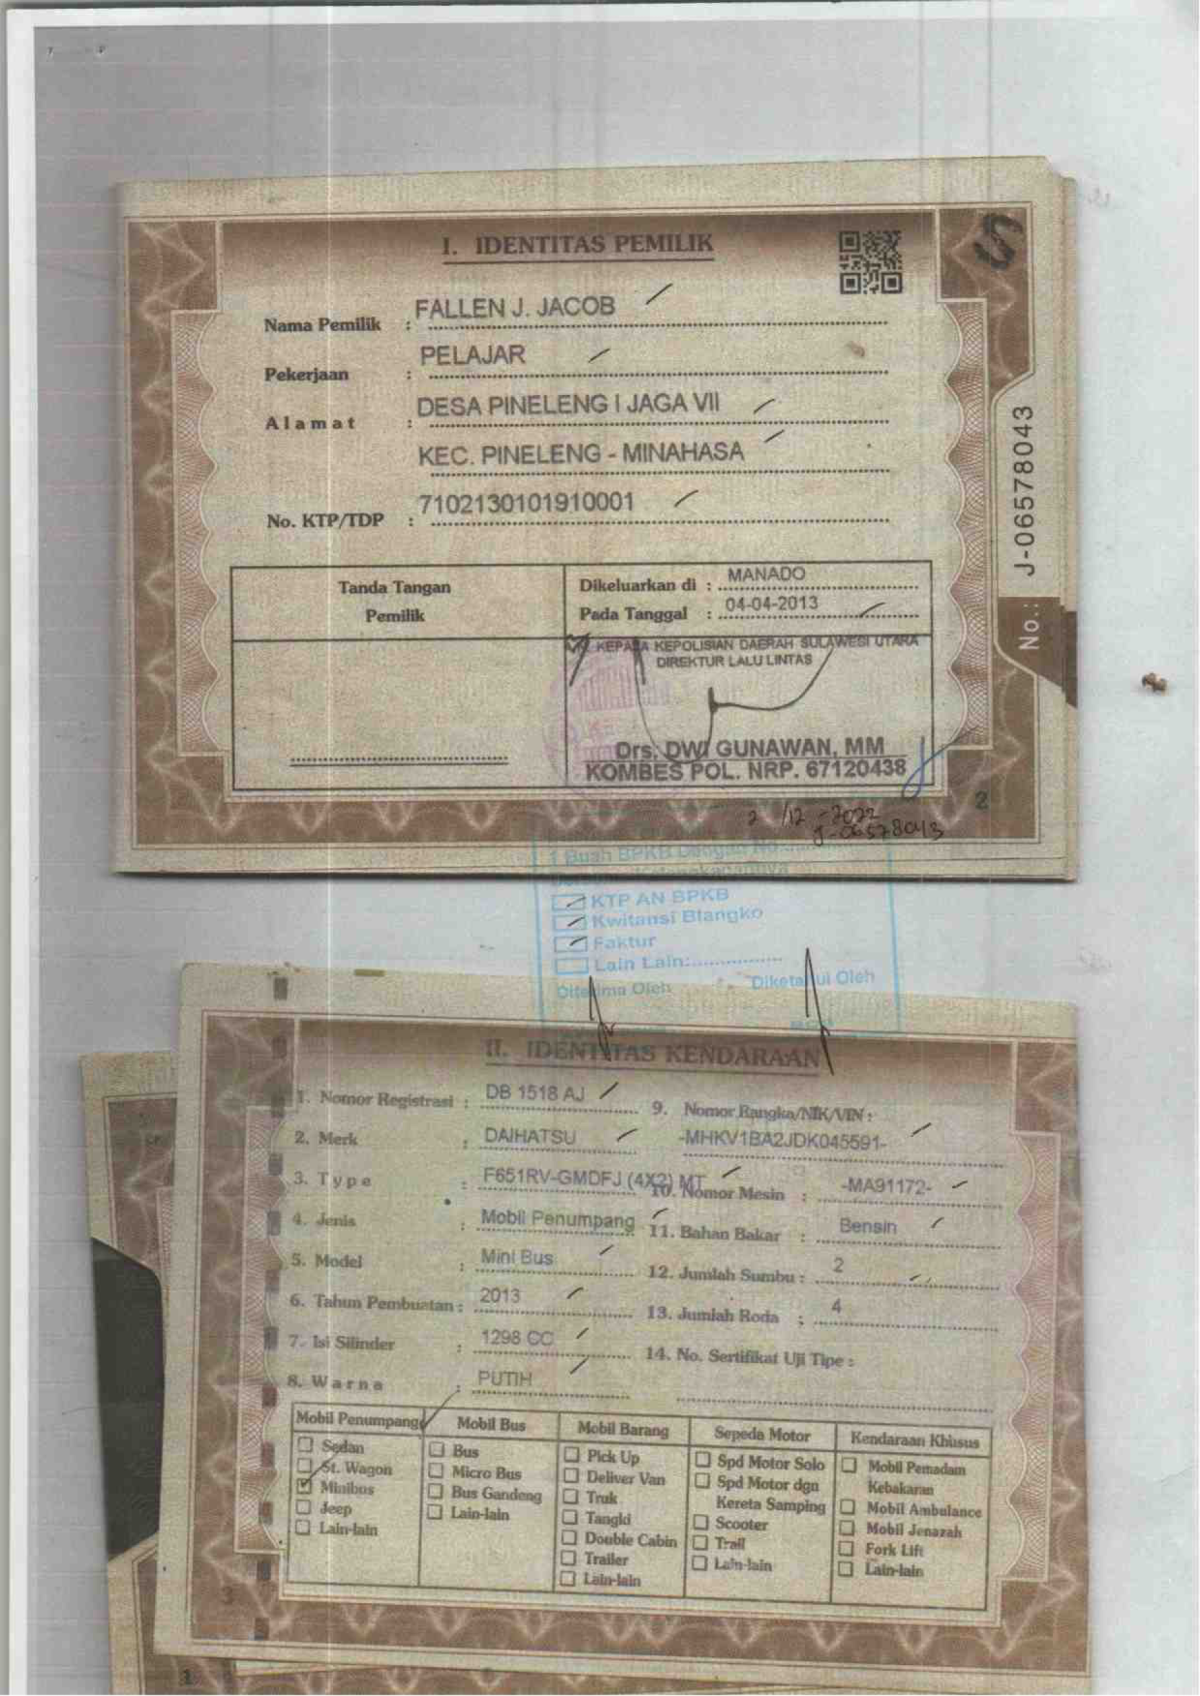 I. IDENTITAS PEMILIK
Nama Pemilik : FALLEN J. JACOB
Pekerjaan : PELAJAR
Alamat : DESA PINELENG I JAGA VII
KEC. PINELENG - MINAHASA
No. KTP/TDP : 7102130101910001
No.: J-06578043
Tanda Tangan
Pemilik
Dikeluarkan di : MANADO
Pada Tanggal : 04-04-2013
KEPALA KEPOLISIAN DAERAH SULAWESI UTARA
DIREKTUR LALU LINTAS
Drs. DWI GUNAWAN, MM
KOMBES POL. NRP. 67120438
2
2/12-2022
J-06578043
1 Buah BPKB Dengan No:
KTP AN BPKB
Kwitansi Blangko
Faktur
Lain Lain:
Diterima Oleh
Diketahui Oleh
II. IDENTITAS KENDARAAN
1. Nomor Registrasi : DB 1518 AJ
2. Merk : DAIHATSU
3. Type : F651RV-GMDFJ (4X2) MT
4. Jenis : Mobil Penumpang
5. Model : Mini Bus
6. Tahun Pembuatan : 2013
7. Isi Silinder : 1298 CC
8. Warna : PUTIH
9. Nomor Rangka/NIK/VIN :
-MHKV1BA2JDK045591-
10. Nomor Mesin : -MA91172-
11. Bahan Bakar : Bensin
12. Jumlah Sumbu : 2
13. Jumlah Roda : 4
14. No. Sertifikat Uji Tipe :
Mobil Penumpang
Sedan
St. Wagon
Minibus
Jeep
Lain-lain
Mobil Bus
Bus
Micro Bus
Bus Gandeng
Lain-lain
Mobil Barang
Pick Up
Deliver Van
Truk
Tangki
Double Cabin
Trailer
Lain-lain
Sepeda Motor
Spd Motor Solo
Spd Motor dgn
Kereta Samping
Scooter
Trail
Lain-lain
Kendaraan Khusus
Mobil Pemadam
Kebakaran
Mobil Ambulance
Mobil Jenazah
Fork Lift
Lain-lain
3
1